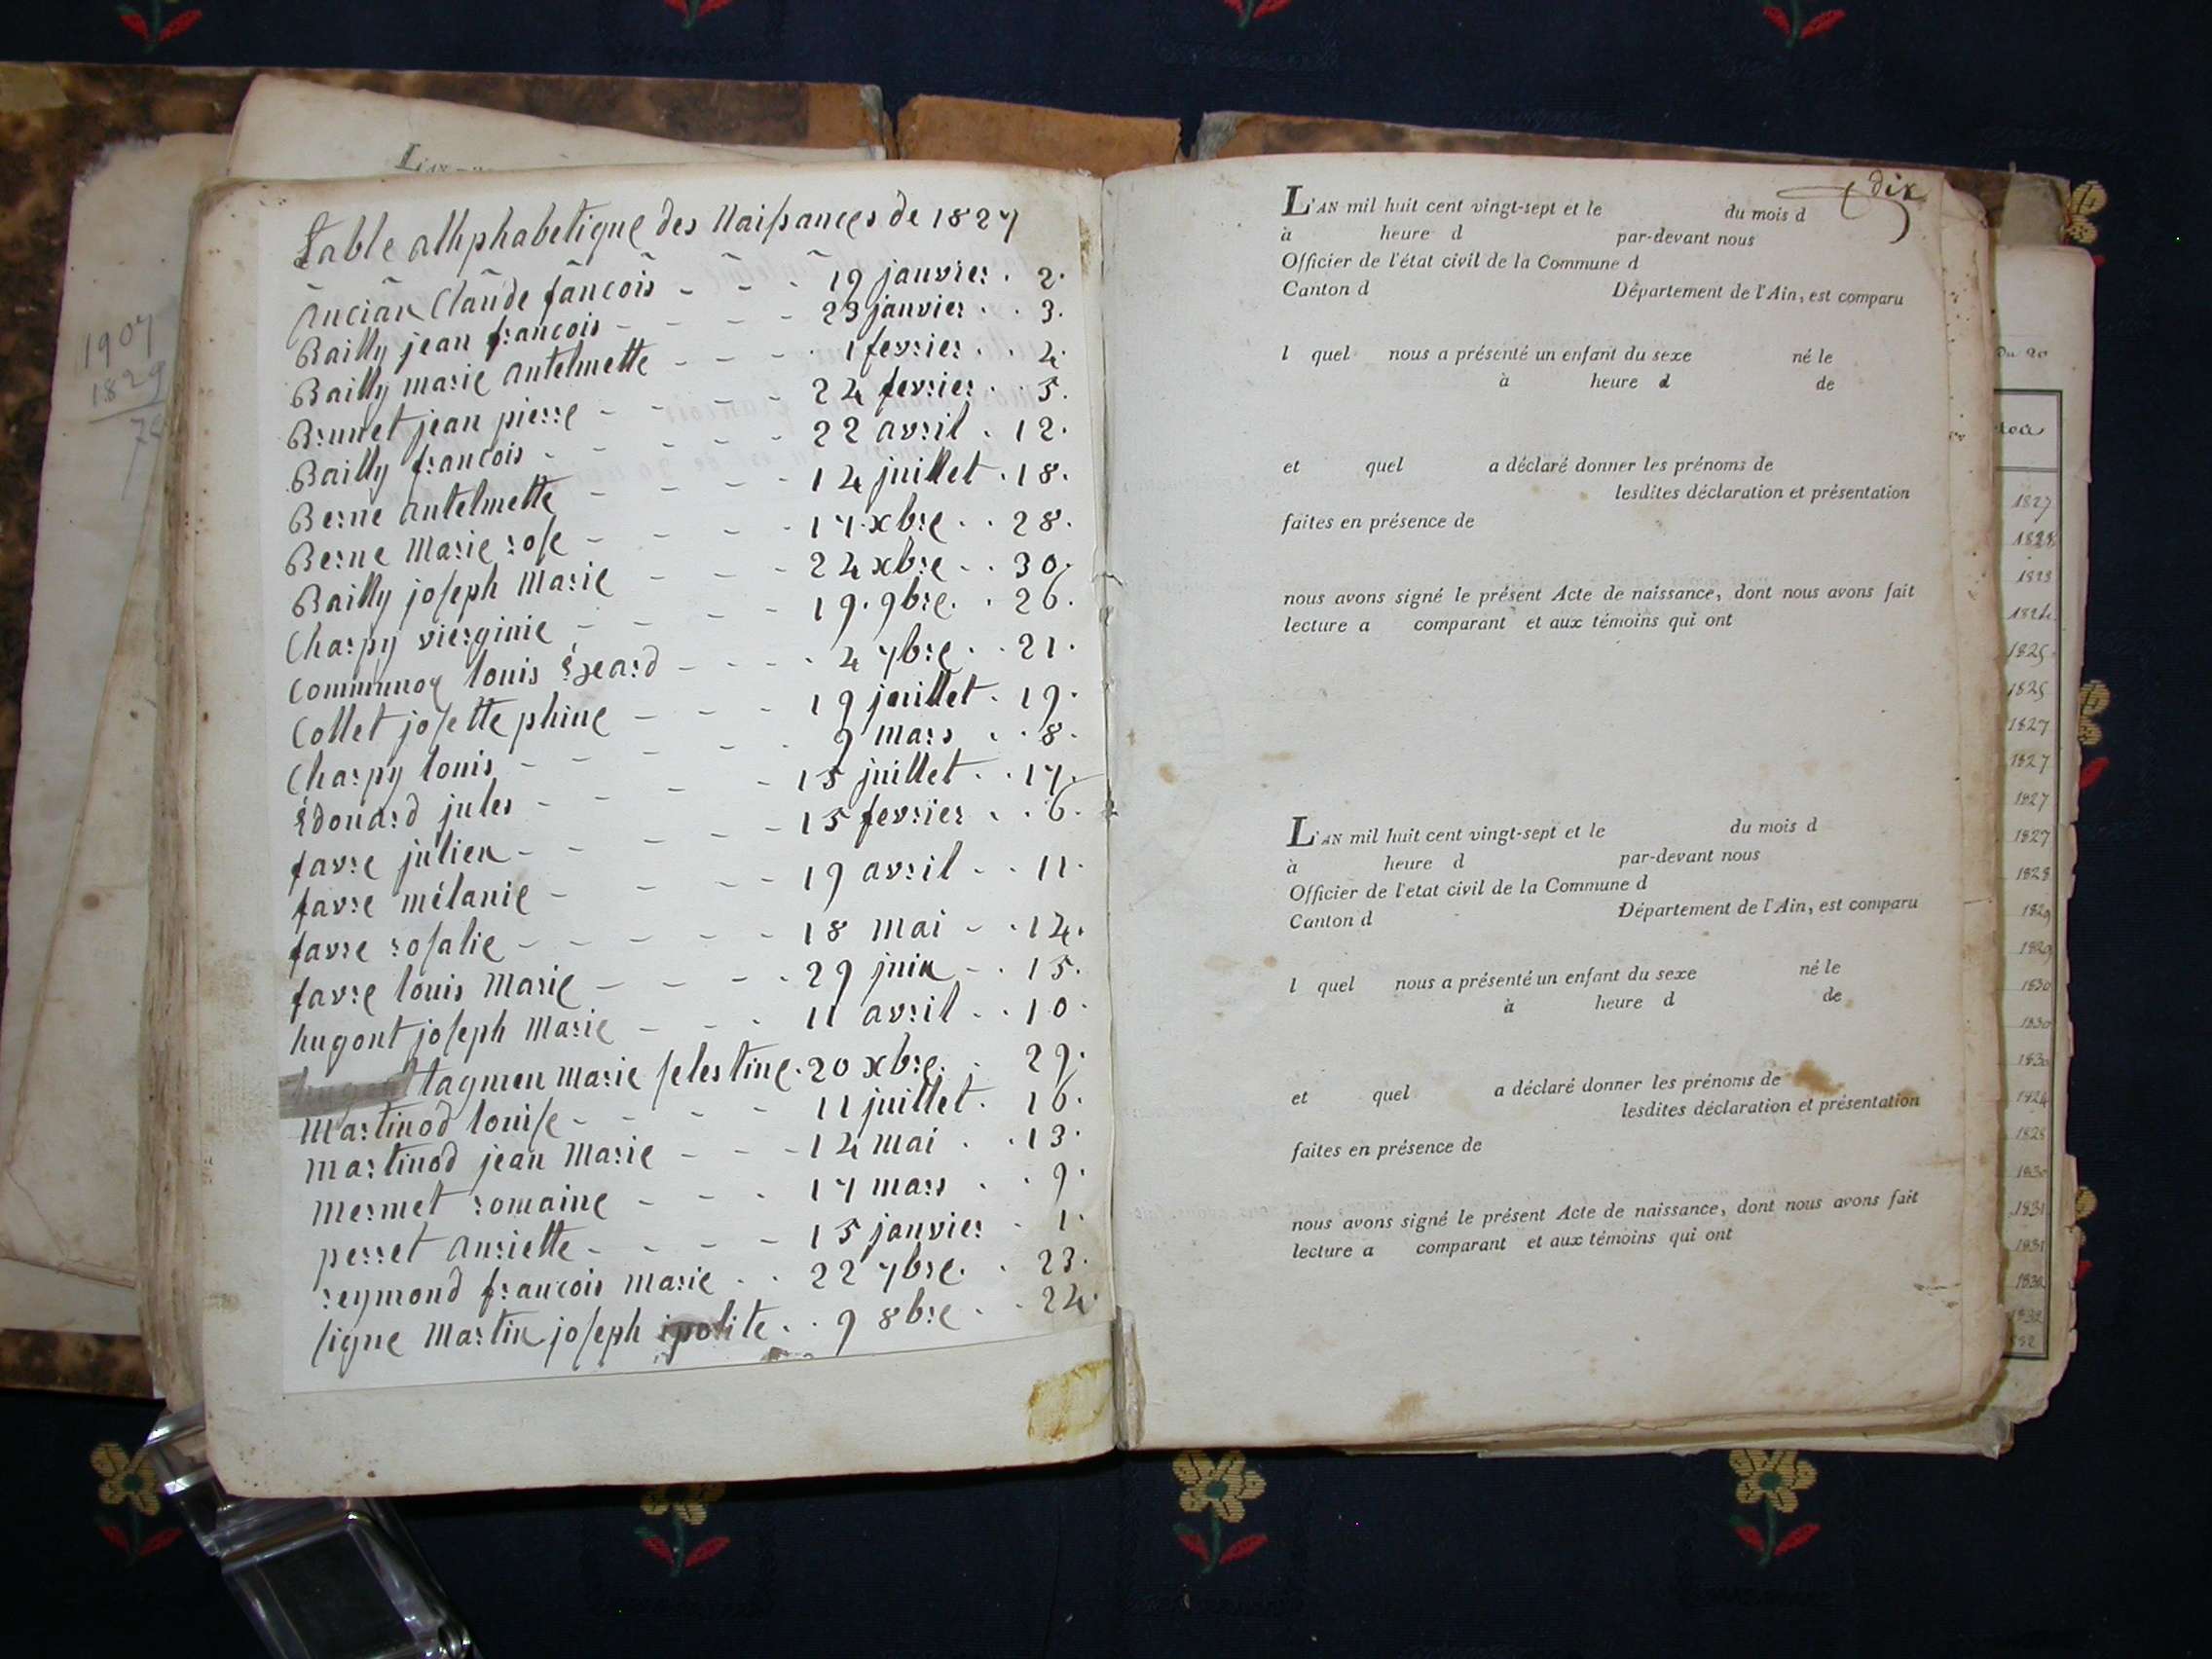 1907
1829
L'AN
table alhphabetique des Naissances de 1827
Ancian Claude fancois - - - 19 janvier . 2.
Bailly jean francois - - - - 23 janvier . . 3.
Bailly marie antelmette - - - . 1 fevrier . . 4.
Brunet jean pierre - - - - 24 fevrier . . 5.
Bailly francois - - - - - 22 avril . 12.
Berne antelmette - - - - 14 juillet . 18.
Berne Marie rose - - - - 17 xbre . . 28.
Bailly joseph Marie - - - 24 xbre - . 30.
Charpy vierginie - - - - 19. 9bre. . 26.
Communog louis - - - . 4 7bre . . 21.
Collet josette phine - - - 19 juillet . 19.
Charpy louis - - - - . 9 mars . . 8.
Édouard jules - - - - 15 juillet . . 17.
favre julien - - - - - 15 fevrier . . 6.
favre mélanie - - - - 19 avril - . 11.
favre rosalie - - - - - 18 mai - . 14.
favre louis Marie - - - . 29 juin - . 15.
hugont joseph Marie - - . 11 avril . . 10.
tagmen marie selestine . 20 xbre. . 29.
Martinod louise - - - - 11 juillet . 16.
martinod jean Marie - - - 14 mai . . 13.
mermet romaine - - . 17 mars . . 9.
perret anriette - - - - 15 janvier - 1.
reymond francois marie . . 22 7bre. . 23.
signe Martin joseph ipolite . . 9 8bre . . 24.
dix
L'AN mil huit cent vingt-sept et le du mois d
à heure d par-devant nous
Officier de l'état civil de la Commune d
Canton d Département de l'Ain, est comparu
l quel nous a présenté un enfant du sexe né le
à heure d de
et quel a déclaré donner les prénoms de
lesdites déclaration et présentation
faites en présence de
nous avons signé le présent Acte de naissance, dont nous avons fait
lecture a comparant et aux témoins qui ont
L'AN mil huit cent vingt-sept et le du mois d
à heure d par-devant nous
Officier de l'etat civil de la Commune d
Canton d Département de l'Ain, est comparu
l quel nous a présenté un enfant du sexe né le
à heure d de
et quel a déclaré donner les prénoms de
lesdites déclaration et présentation
faites en présence de
nous avons signé le présent Acte de naissance, dont nous avons fait
lecture a comparant et aux témoins qui ont
du 20
1827
1828
1823
1824
1825
1825
1827
1827
1827
1827
1828
1829
1829
1830
1830
1830
1828
1830
1831
1831
1832
1832